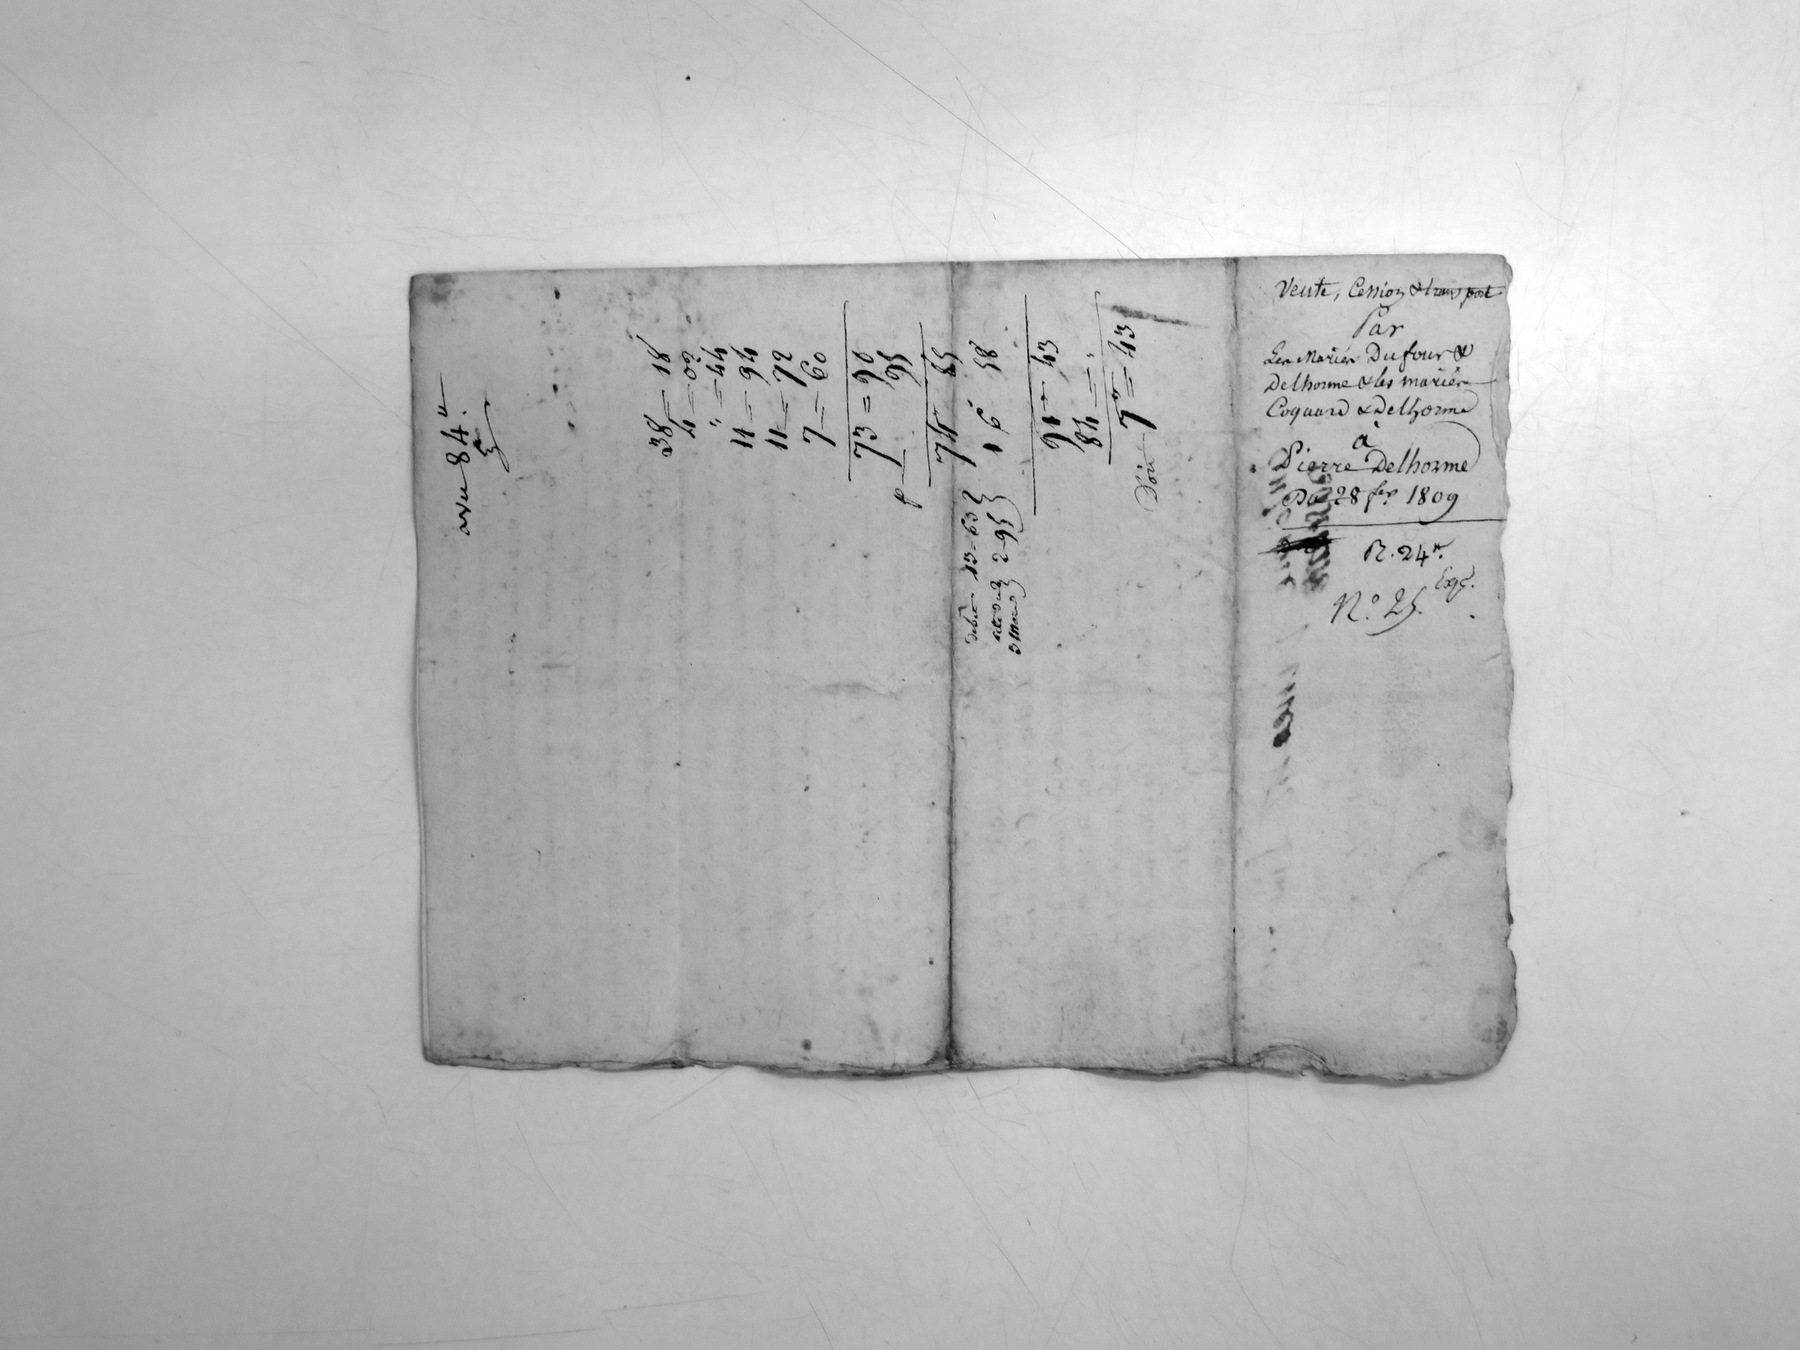 Vente, Cession & transport
Par
Les Mariés Dufour &
Delhorme & les mariés
Coquard & Delhorme
à
Pierre Delhorme
Du 28 fer 1809
R. 24"
Exge.
N.° 25.
84"
38 — 18
4 = 02
" = 44
11 — 94
11 = 72
7 — 60
73 = 90
95
74 85
16 58
debit 13 = 63
2 — 95
91 = 43
84 = "
7" = 43